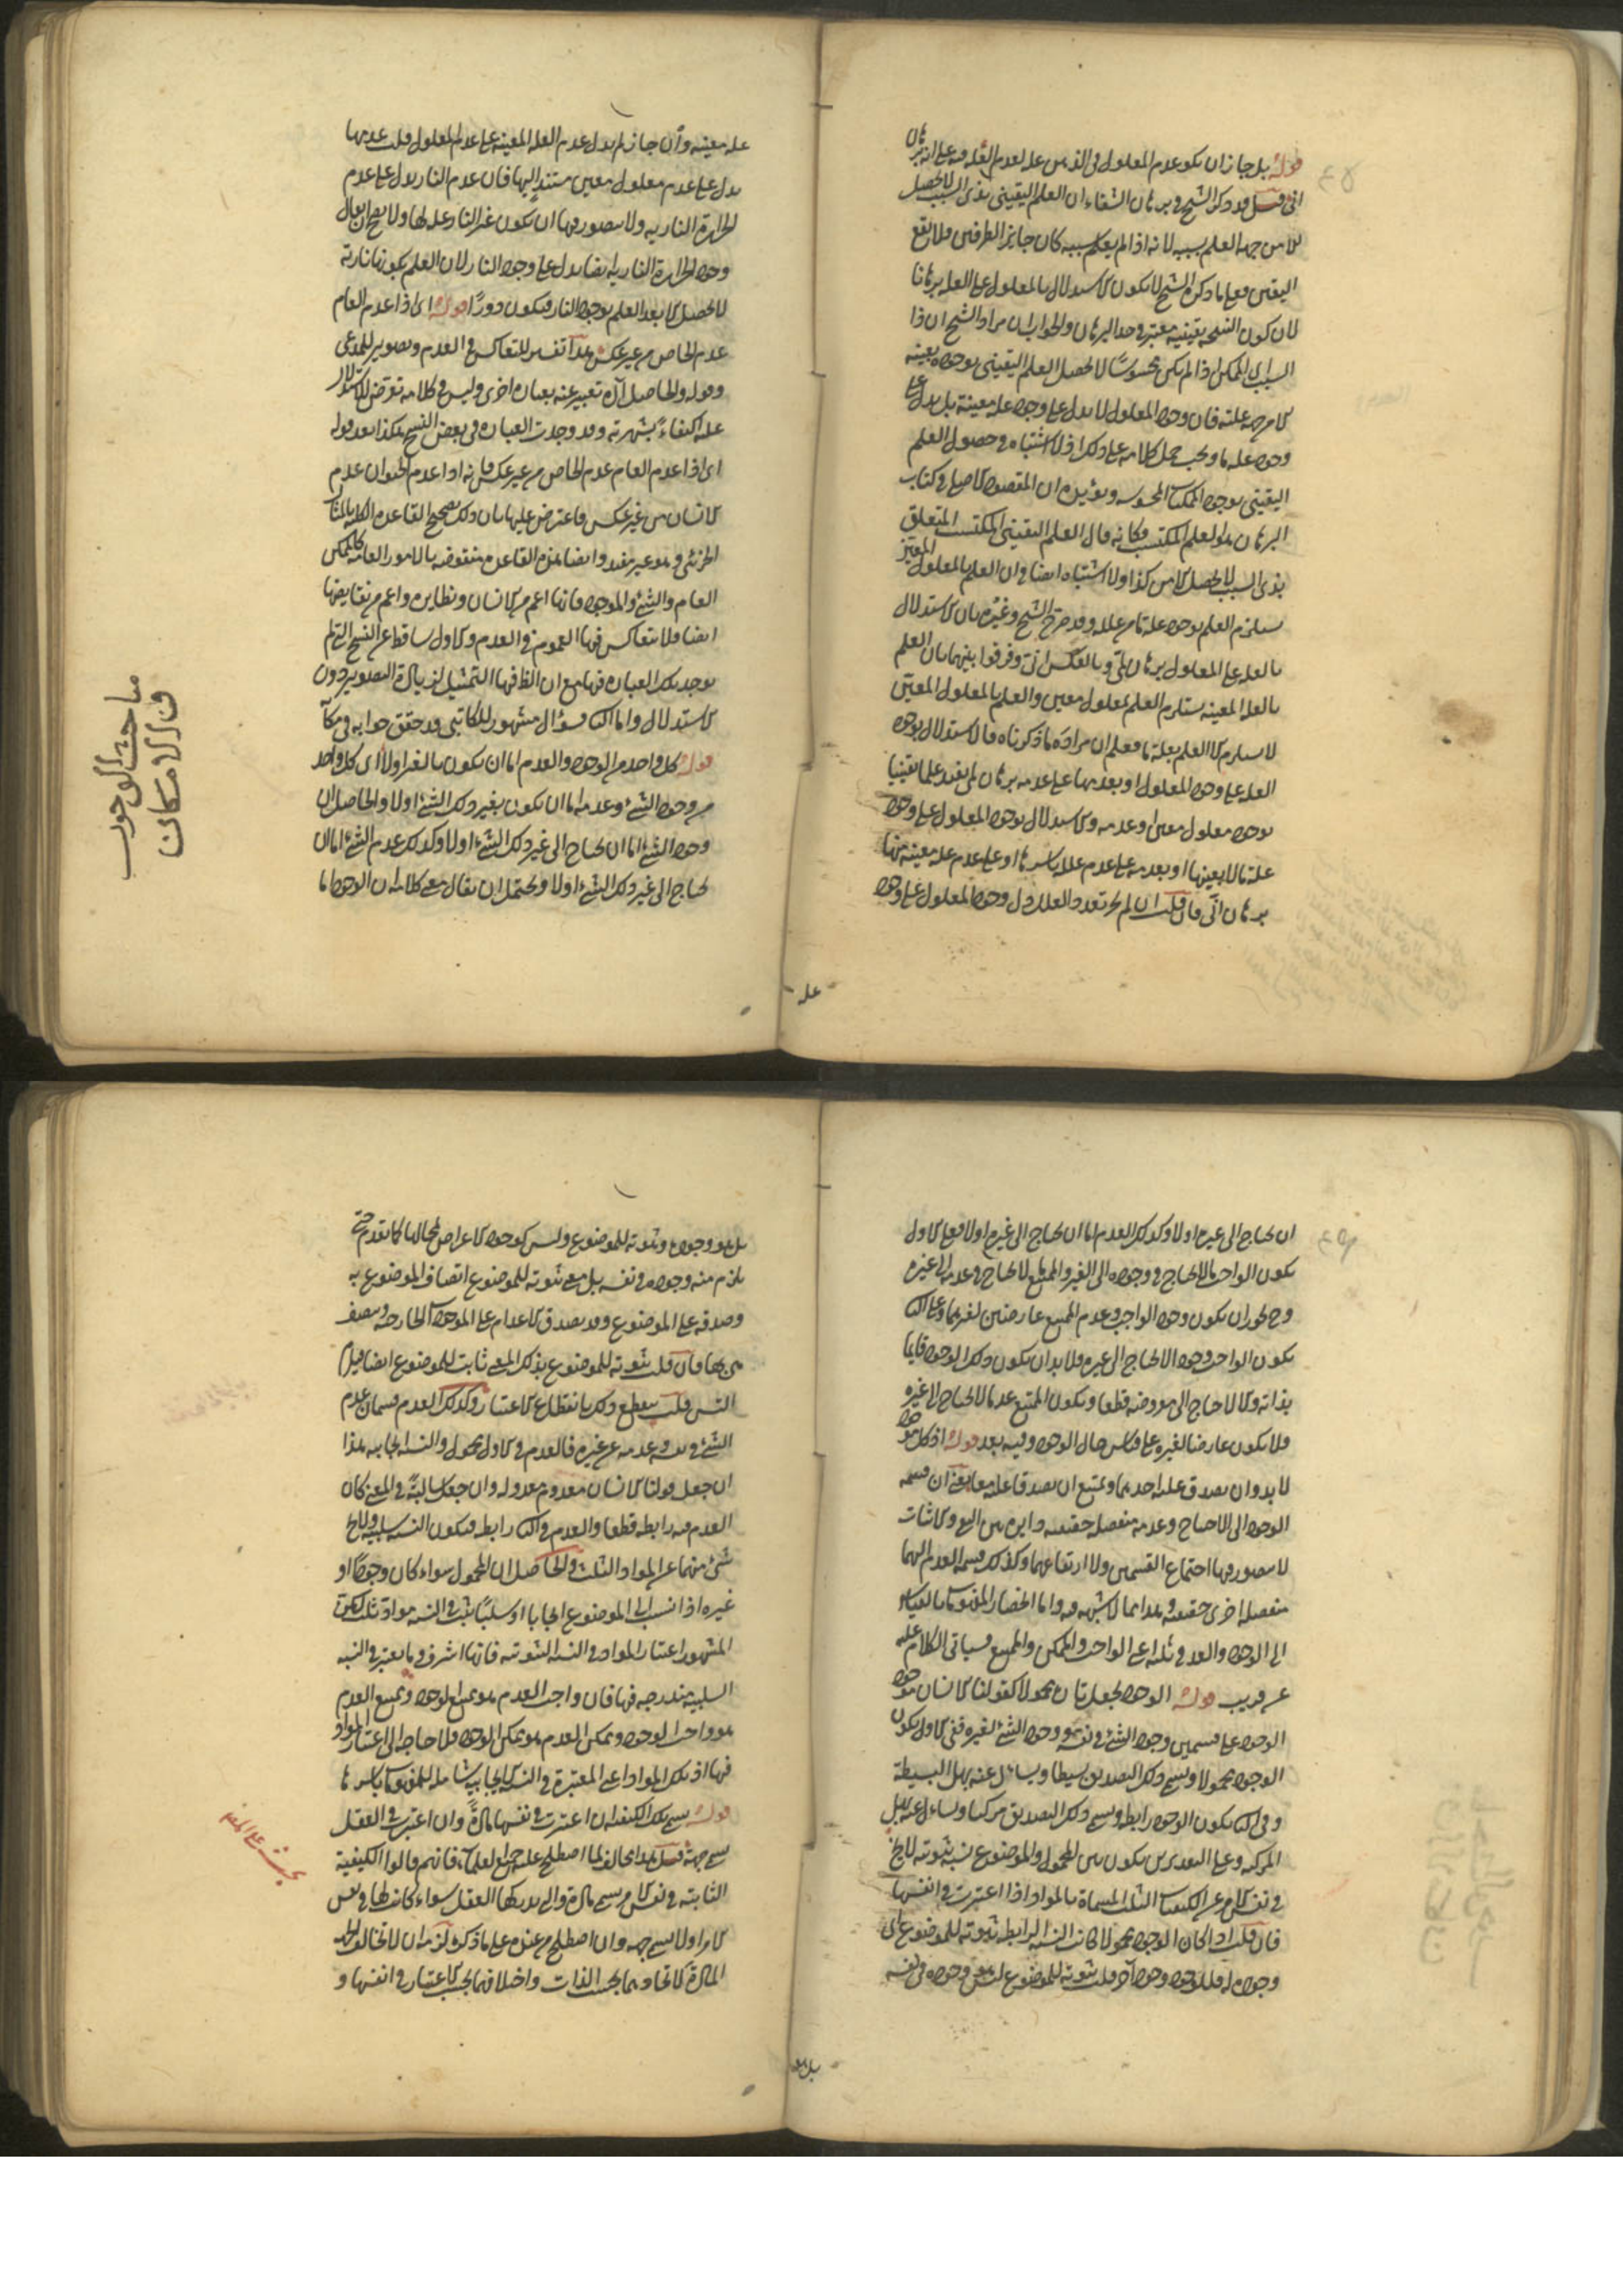 قوله بل جاز ان يكون عدم المعلول فى الذهن علة لعدم العلة فيه على انه برهان
انى قيل قد ذكر الشيخ فى برهان الشفاء ان العلم اليقينى بذى السبب لا يحصل
الا من جهة العلم بسببه لانه اذا لم يعلم بسببه كان جايز الطرفين فلا يقع
اليقين فعلى ما ذكره الشيخ لا يكون الاستدلال بالمعلول على العلة برهانا
لان كون النتيجة يقينية معتبر فى حد البرهان والجواب ان مراد الشيخ ان ذا
السبب اى الممكن اذا لم يكن محسوسا لا يحصل العلم اليقينى بوجوده بعينه
الا من جهة علته فان وجود المعلول لا يدل على وجود علة معينة بل يدل على
وجود علة ما ويجب حمل كلامه على ذلك اذ لا اشتباه فى حصول العلم
اليقينى بوجود الممكنات المحسوسة ويؤيده ان المقصود الاصلى فى كتاب
البرهان هو العلم المكتسب فكانه قال العلم اليقينى المكتسب المتعلق
بذى السبب لا يحصل الا من كذا ولا اشتباه ايضا فى ان العلم بالمعلول المعين
يستلزم العلم بوجود علة ما من علله وقد صرح الشيخ وغيره بان الاستدلال
بالعلة على المعلول برهان لمى وبالعكس انى وفرقوا بينهما بان العلم
بالعلة المعينة يستلزم العلم بمعلول معين والعلم بالمعلول المعين
لا يستلزم الا العلم بعلة ما فعلم ان مراده ما ذكرناه فالاستدلال بوجود
العلة على وجود المعلول او بعدمها على عدمه برهان لمى يفيد علما يقينيا
بوجود معلول معين او عدمه والاستدلال بوجود المعلول على وجود
علة ما لا بعينها او بعدمه على عدم علله باسرها او على عدم علة معينة منها
برهان انى فان قلت ان لم يجز تعدد العلل دل وجود المعلول على وجود
علة
علة معينة وان جاز لم يدل عدم العلة المعينة على عدم المعلول قلت عدمها
يدل على عدم معلول معين مستند اليها فان عدم النار يدل على عدم
الحرارة النارية ولا يتصور فيها ان يكون غير النار علة لها ولا يصح ان يقال
وجود الحرارة النارية ايضا يدل على وجود النار لان العلم بكونها نارية
لا يحصل الا بعد العلم بوجود النار فيكون دورا قوله اى اذا عدم العام
عدم الخاص من غير عكس هذا تفسير للتعاكس فى العدم وتصوير للمدعى
وقوله والحاصل آه تعبير عنه بعبارة اخرى وليس فى كلامه تعرض للاستدلال
عليه اكتفاء بشهرته وقد وجدت العبارة فى بعض النسخ هكذا بعد قوله
اى اذا عدم العام عدم الخاص من غير عكس فانه اذا عدم الحيوان عدم
الانسان من غير عكس فاعترض عليها بان ذلك تصحيح القاعدة الكلية بالمثال
الجزئى وهو غير مفيد وايضا هذه القاعدة منقوضة بالامور العامة كالممكن
العام والشئ والموجود فانها اعم من الانسان ونظايره واعم من نقايضها
ايضا فلا يتعاكس فيها العموم فى العدم والاول ساقط عن النسخ التى لم
يوجد تلك العبارة فيها مع ان الظ فيها التمثيل لزيادة التصوير دون
الاستدلال واما الثانى فسؤال مشهور للكاتبى وقد حقق جوابه فى مكانه
قوله كل واحد من الوجود والعدم اما ان يكون بالغير اولا اى كل واحد
من وجود الشئ وعدمه اما ان يكون بغير ذلك الشئ اولا والحاصل ان
وجود الشئ اما ان يحتاج الى غير ذلك الشئ اولا وكذلك عدم الشئ اما ان
يحتاج الى غير ذلك الشئ اولا ويحتمل ان يقال معنى كلامه ان الوجود اما
مباحث الوجوب
والامكان
ان يحتاج الى غيره اولا وكذلك العدم اما ان يحتاج الى غيره اولا فعلى الاول
يكون الواجب ما لا يحتاج فى وجوده الى الغير والممتنع ما لا يحتاج فى عدمه الى غيره
وح يجوز ان يكون وجود الواجب وعدم الممتنع عارضين لغيرهما وعلى الثانى
يكون الواجب وجودا لا يحتاج الى غيره فلا بد ان يكون ذلك الوجود قايما
بذاته والا لاحتاج الى معروضه قطعا ويكون الممتنع عدما لا يحتاج الى غيره
فلا يكون عارضا لغيره على قياس حال الوجود وفيه بعد قوله اذ كل موجود
لا بد وان يصدق عليه احدهما ويمتنع ان يصدقا عليه معا يعنى ان قسمة
الوجود الى الاحتياج وعدمه منفصلة حقيقية دايرة بين النفى والاثبات
لا يتصور فيها اجتماع القسمين ولا ارتفاعهما وكذلك قسمة العدم اليهما
منفصلة اخرى حقيقية وهذا مما لا شبهة فيه واما انحصار المفهومات بالقياس
الى الوجود والعدم فى ثلثة اعنى الواجب والممكن والممتنع فسياتى الكلام عليه
عن قريب قوله الوجود يجعل تارة محمولا كقولنا الانسان موجود
الوجود على قسمين وجود الشئ فى نفسه ووجود الشئ لغيره ففى الاول يكون
الوجود محمولا ويسمى ذلك التصديق بسيطا ويسأل عنه بهل البسيطة
وفى الثانى يكون الوجود رابطة ويسمى ذلك التصديق مركبا ويسأل عنه بهل
المركبة وعلى التقديرين يكون بين المحمول والموضوع نسبة ثبوتية لا تخ
فى نفس الامر عن الكيفيات الثلث المسماة بالمواد اذا اعتبرت فى انفسها
فان قلت اذا كان الوجود محمولا كانت النسبة الرابطة ثبوته للموضوع اى
وجوده له فللوجود وجود آخر قلت ثبوته للموضوع ليس هو وجوده فى نفسه
بل هو
بل هو وجوده وثبوته للموضوع وليس كوجود الاعراض لمحالها كما تقدم حتى
يلزم منه وجوده فى نفسه بل معنى ثبوته للموضوع اتصاف الموضوع به
وصدقه على الموضوع وقد يصدق الاعدام على الموجودات الخارجية ويتصف
هى بها فان قلت ثبوته للموضوع بذلك المعنى ثابت للموضوع ايضا فيلزم
التس قلت ينقطع ذلك بانقطاع الاعتبار وكذلك العدم قسمان عدم
الشئ فى نفسه وعدمه عن غيره فالعدم فى الاول محمول والنسبة ايجابية هذا
ان جعل قولنا الانسان معدوم معدولة وان جعل سالبة فى المعنى كان
العدم فيه رابطة قطعا والعدم فى الثانى رابطة فيكون النسبة سلبية ولا يخ
شئ منهما عن المواد الثلث والحاصل ان المحمول سواء كان وجودا او
غيره اذا نسب الى الموضوع ايجابا او سلبا يثبت فى النسبة مواد ثلث لكن
المشهور اعتبار المواد فى النسبة الثبوتية فانها اشرف وما يعتبر فى النسبة
السلبية يندرج فيها فان واجب العدم هو ممتنع الوجود وممتنع العدم
هو واجب الوجود وممكن العدم هو ممكن الوجود فلا حاجة الى اعتبار المواد
فيها اذ تلك المواد اعنى المعتبرة فى النسبة الايجابية شاملة للمفهومات باسرها
قوله يسمى تلك الكيفية ان اعتبرت فى نفسها مادة وان اعتبرت فى العقل
يسمى جهة قيل هذا مخالف لما اصطلح عليه جميع العلماء فانهم قالوا الكيفية
الثابتة فى نفس الامر يسمى مادة والتى يدركها العقل سواء كانت لها فى نفس
الامر اولا يسمى جهة وان اصطلح من عنده على ما ذكره لزمه ان لا تخالف الجهة
المادة لاتحادهما بحسب الذات واختلافهما بحسب الاعتبار فى انفسها و